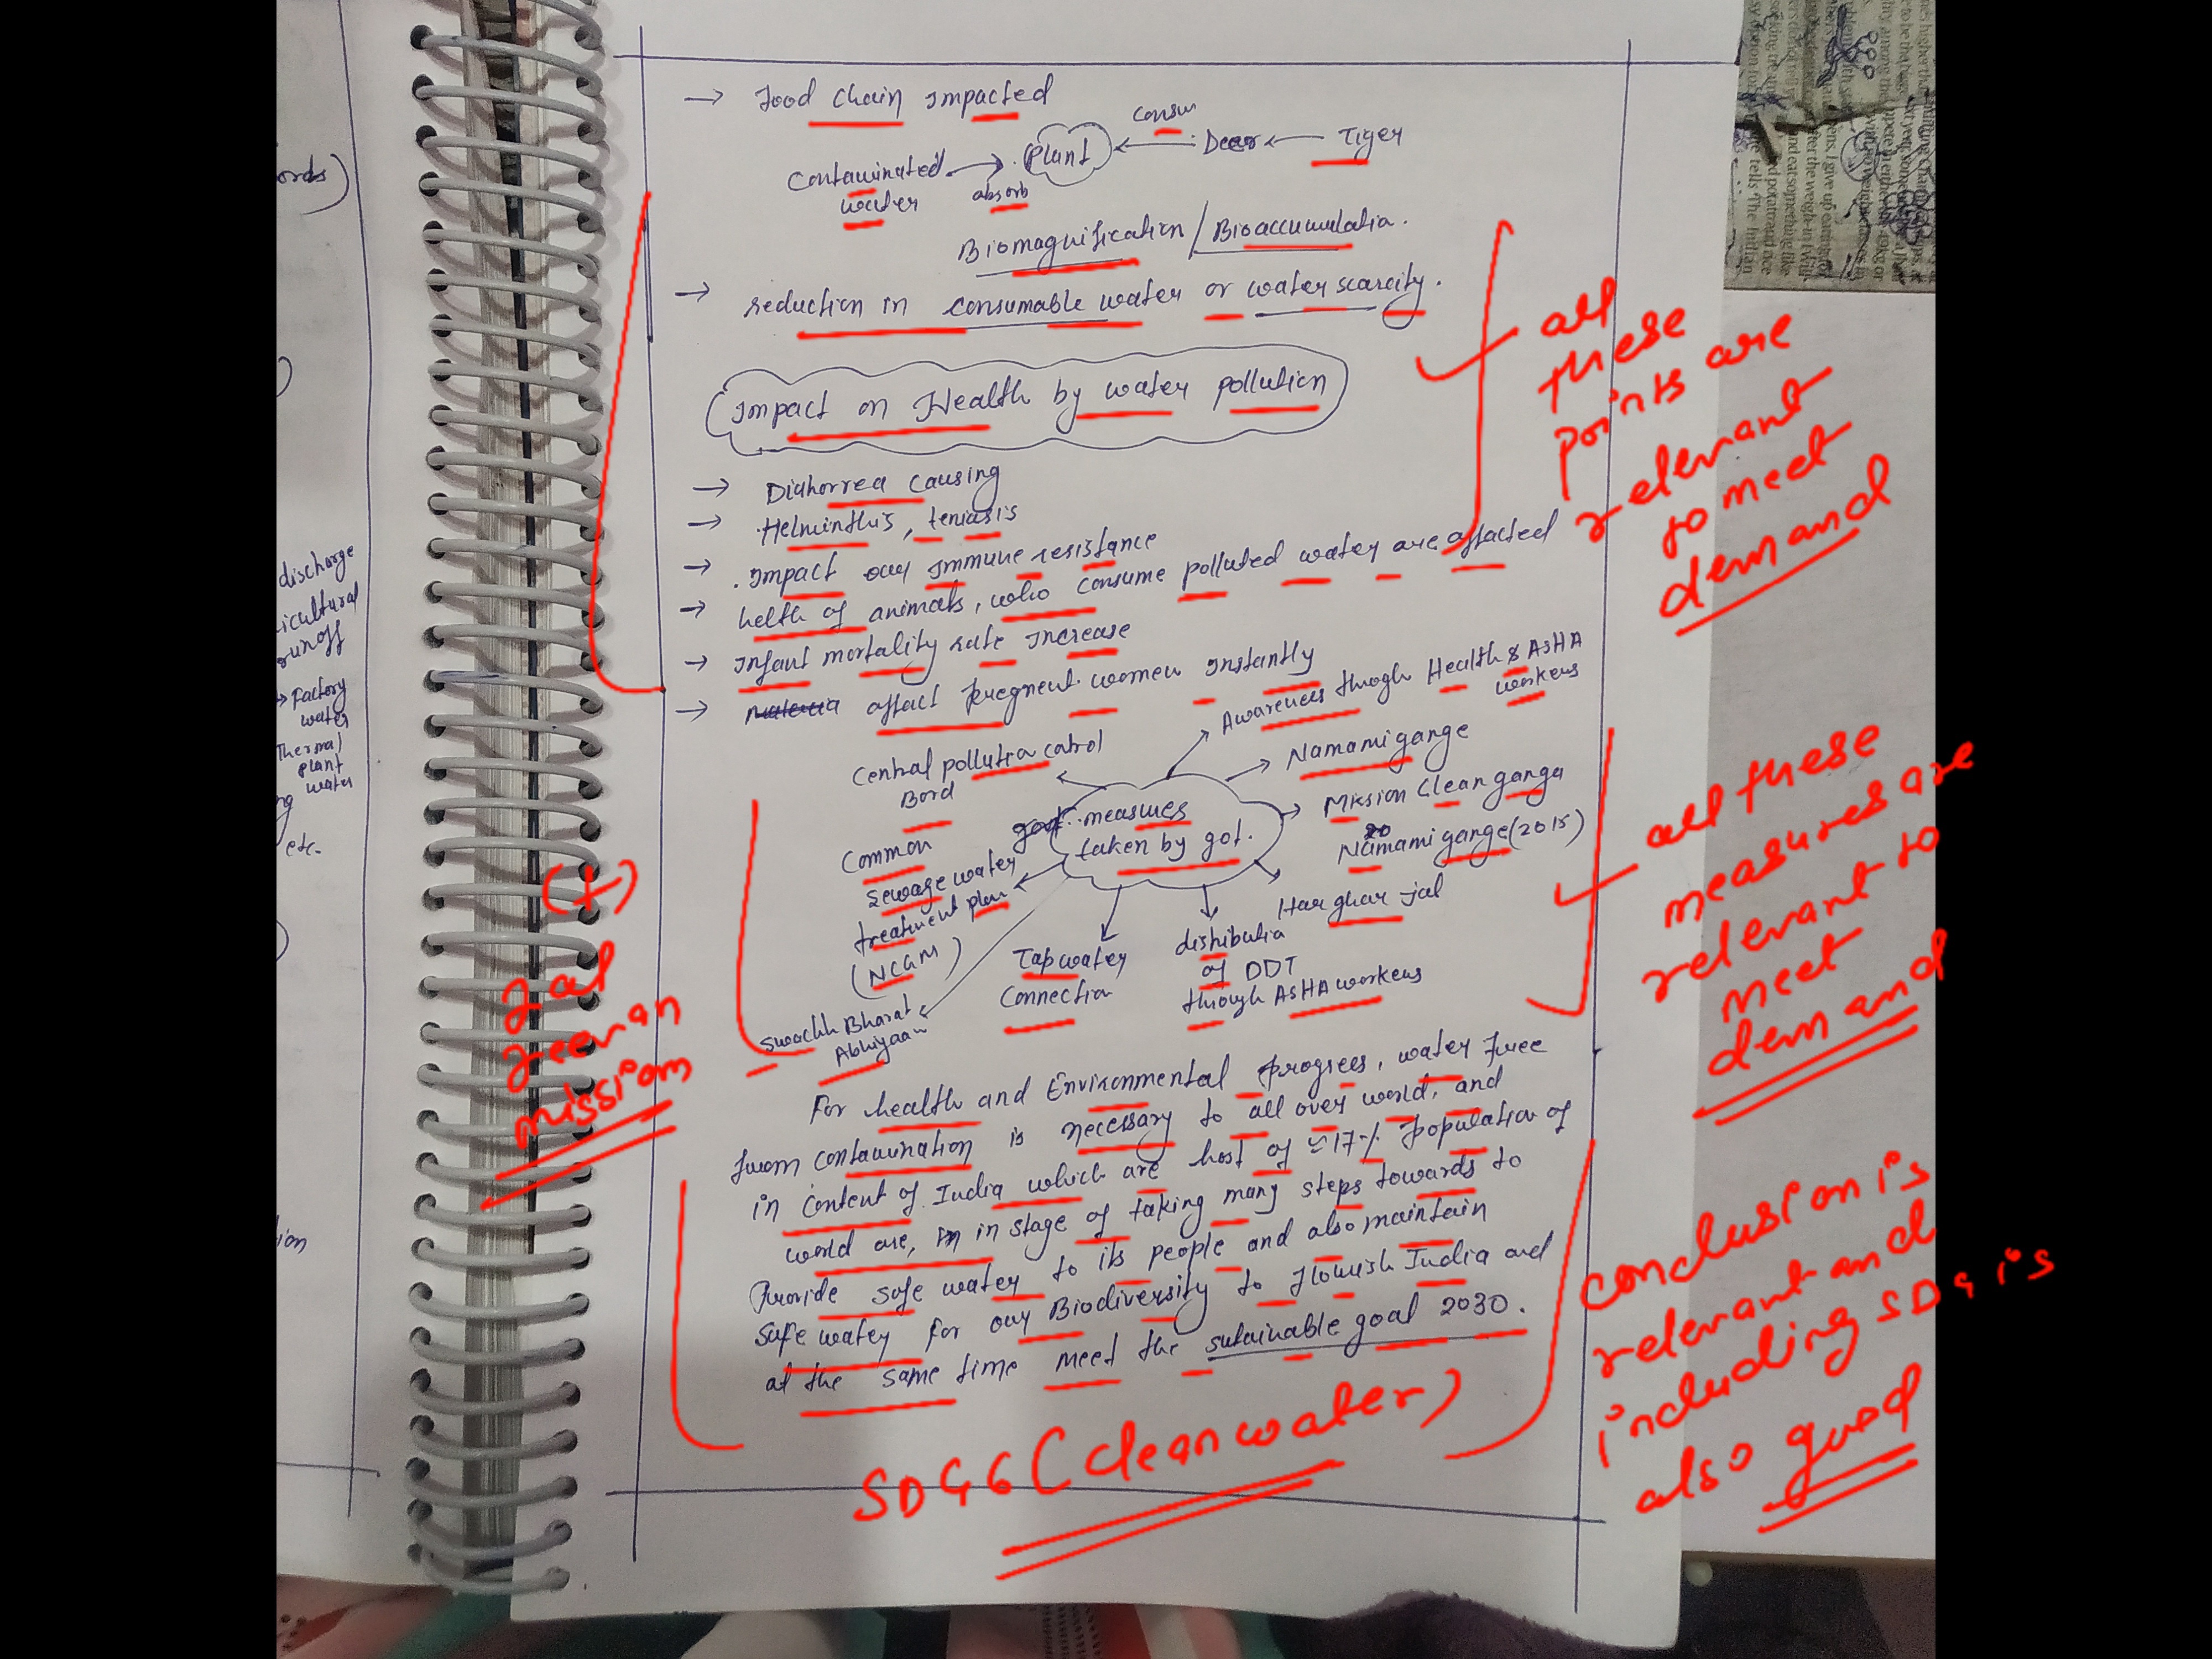 → Food Chain Impacted
Contaminated water → absorb Plant ← Consum Deer ← Tiger
Biomagnification / Bioaccumulatia.
→ reduction in consumable water or water scarcity.
Impact on Health by water pollution
→ Diahorrea causing
→ Helminthis, teniasis
→ Impact our immune resistance
→ helth of animals, who consume polluted water are affacted
→ Infant mortality rate Increase
→ affact Pregnent women Instantly
all
these
points are
relevant
to meet
demand
measures
taken by got.
Awarenees throgh Health & ASHA
workers
Namami gange
Mission Clean ganga
Namami gange (2015)
Har ghar jal
distributia
of DDT
through ASHA workers
Tap water
Connectia
Swachh Bharat
Abhiyaan
Common
Sewage water
treatment plan
(NCGM)
Central pollutia catrol
Bord
(+)
Jal
Jeevan
mission
all these
measures are
relevant to
meet
demand
For health and Environmental Progrees, water free
from contamination is necessary to all over world, and
in content of India which are host of ≈17% Population of
world are, in stage of taking many steps towards to
Provide safe water to its people and also maintain
safe water for our Biodiversity to flowrish India and
at the same time meet the sutainable goal 2030.
SDG 6 (clean water)
conclusion is
relevant and
including SDG is
also good
ords)
discharge
runoff
→ Factory
water
Thermal
plant
water
etc.